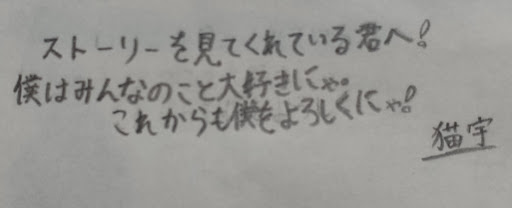 ストーリーを見てくれている君へ!
僕はみんなのこと大好きにゃ。
これからも僕をよろしくにゃ!
猫宇